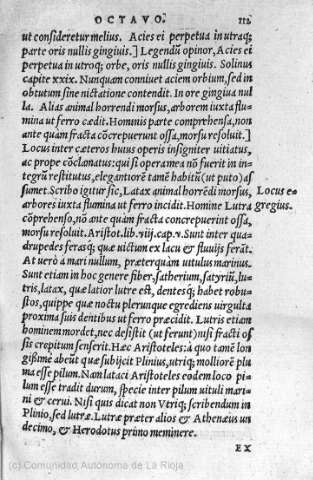 OCTAVO. 112
ut consideretur melius. Acies ei perpetua in utraq;
parte oris nullis gingiuis.] Legendũ opinor, Acies ei
perpetua in utroq; orbe, oris nullis gingiuis. Solinus
capite xxix. Nunquam conniuet aciem orbium, sed in
obtutum sine nictatione contendit. In ore gingiua nul
la. Alias animal horrendi morsus, arborem iuxta flu=
mina ut ferro cædit. Hominis parte comprehensa, non
ante quàm fracta cõcrepuerunt ossa, morsu resoluit.]
Locus inter cæteros huius operis insigniter uitiatus,
ac prope cõclamatus: qui si opera mea nõ fuerit in inte=
grũ restitutus, elegantiorẽ tanẽ habitũ (ut puto) as
sumet. Scribo igitur sic, Latax animal horrẽdi morsus,
arbores iuxta flumina ut ferro incidit. Homine Lutra
Locus e=
gregius.
cõprehenso, nõ ante quàm fracta concrepuerint ossa,
morsu resoluit. Aristot. lib. viij. cap. v. Sunt inter qua=
drupedes feras q; quæ uictum ex lacu & fluuijs ferãt.
At uerò à mari nullum, præterquàm uitulus marinus.
Sunt etiam in hoc genere fiber, satherium, satyriũ, lu=
tris, latax, quæ latior lutre est, dentesq; habet robu=
stos, quippe quæ noctu plerunque egrediens uirgulta
proxima suis dentibus ut ferro præcidit. Lutris etiam
hominem mordet, nec desistit (ut ferunt) nisi fracti os
sis crepitum senserit. Hæc Aristoteles: à quo tanẽ lon
gissimè abeũt quæ subijcit Plinius, utriq; molliorẽ plu
ma esse pilum. Nam lataci Aristoteles eodem loco pi=
lum esse tradit durum, specie inter pilum uituli mari=
ni & cerui. Nisi quis dicat non Vtriq; scribendum in
Plinio, sed lutræ. Lutræ præter alios & Athenæus un
decimo, & Herodotus primo meminere.
EX
(c) Comunidad Autónoma de La Rioja